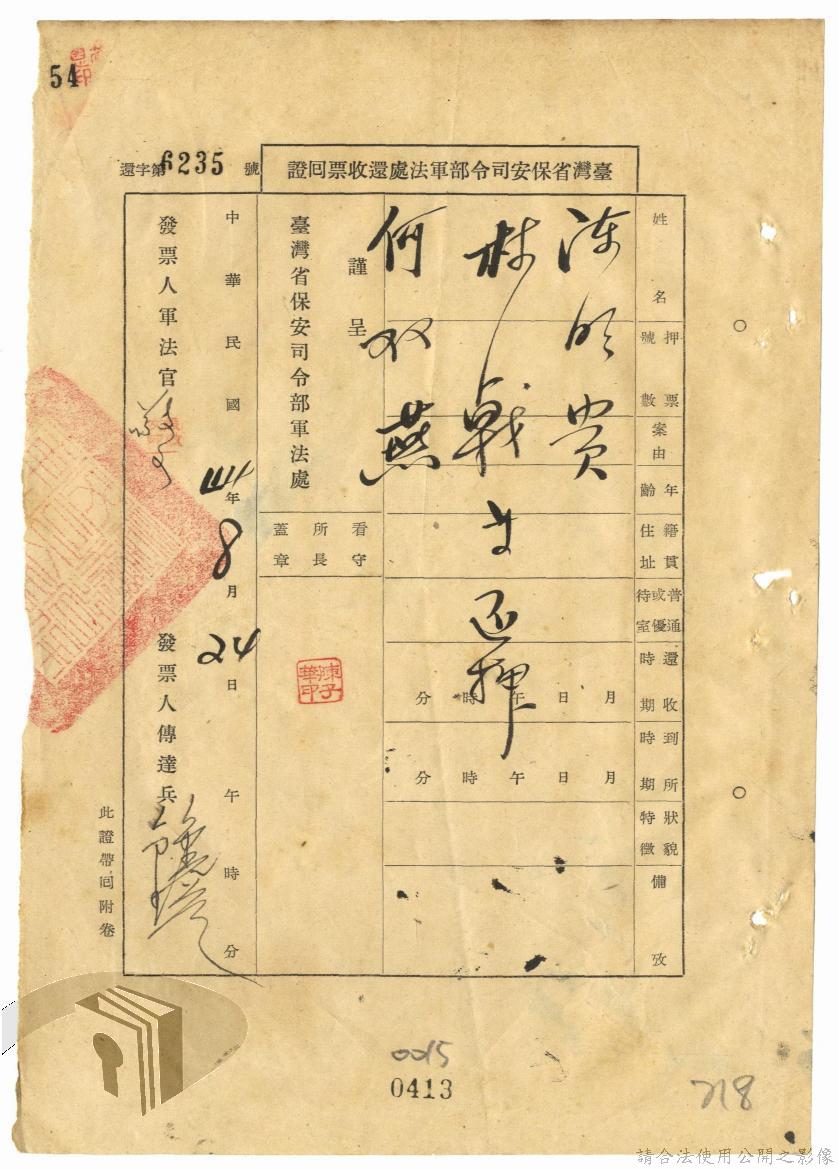 54
還字第6235號
臺灣省保安司令部軍法處還收票回證
姓名
押票號數
案由
年齡
籍貫住址
普通或優待室
還收時期
到所時期
狀貌特徵
備攷
陳明貴
林
戟
还押
何双燕
月 日 午 時 分
月 日 午 時 分
謹呈
臺灣省保安司令部軍法處
看守所長蓋章
陳子華印
中華民國 年8月24日 午 時 分
發票人軍法官
發票人傳達兵
此證帶回附卷
0015
0413
718
請合法使用公開之影像